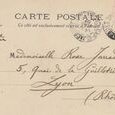 CARTE POSTALE
Ce côté est exclusivement réservé à l'adresse
Mademoiselle Rose
5, Quai de la Guillotière
Lyon
(Rhône